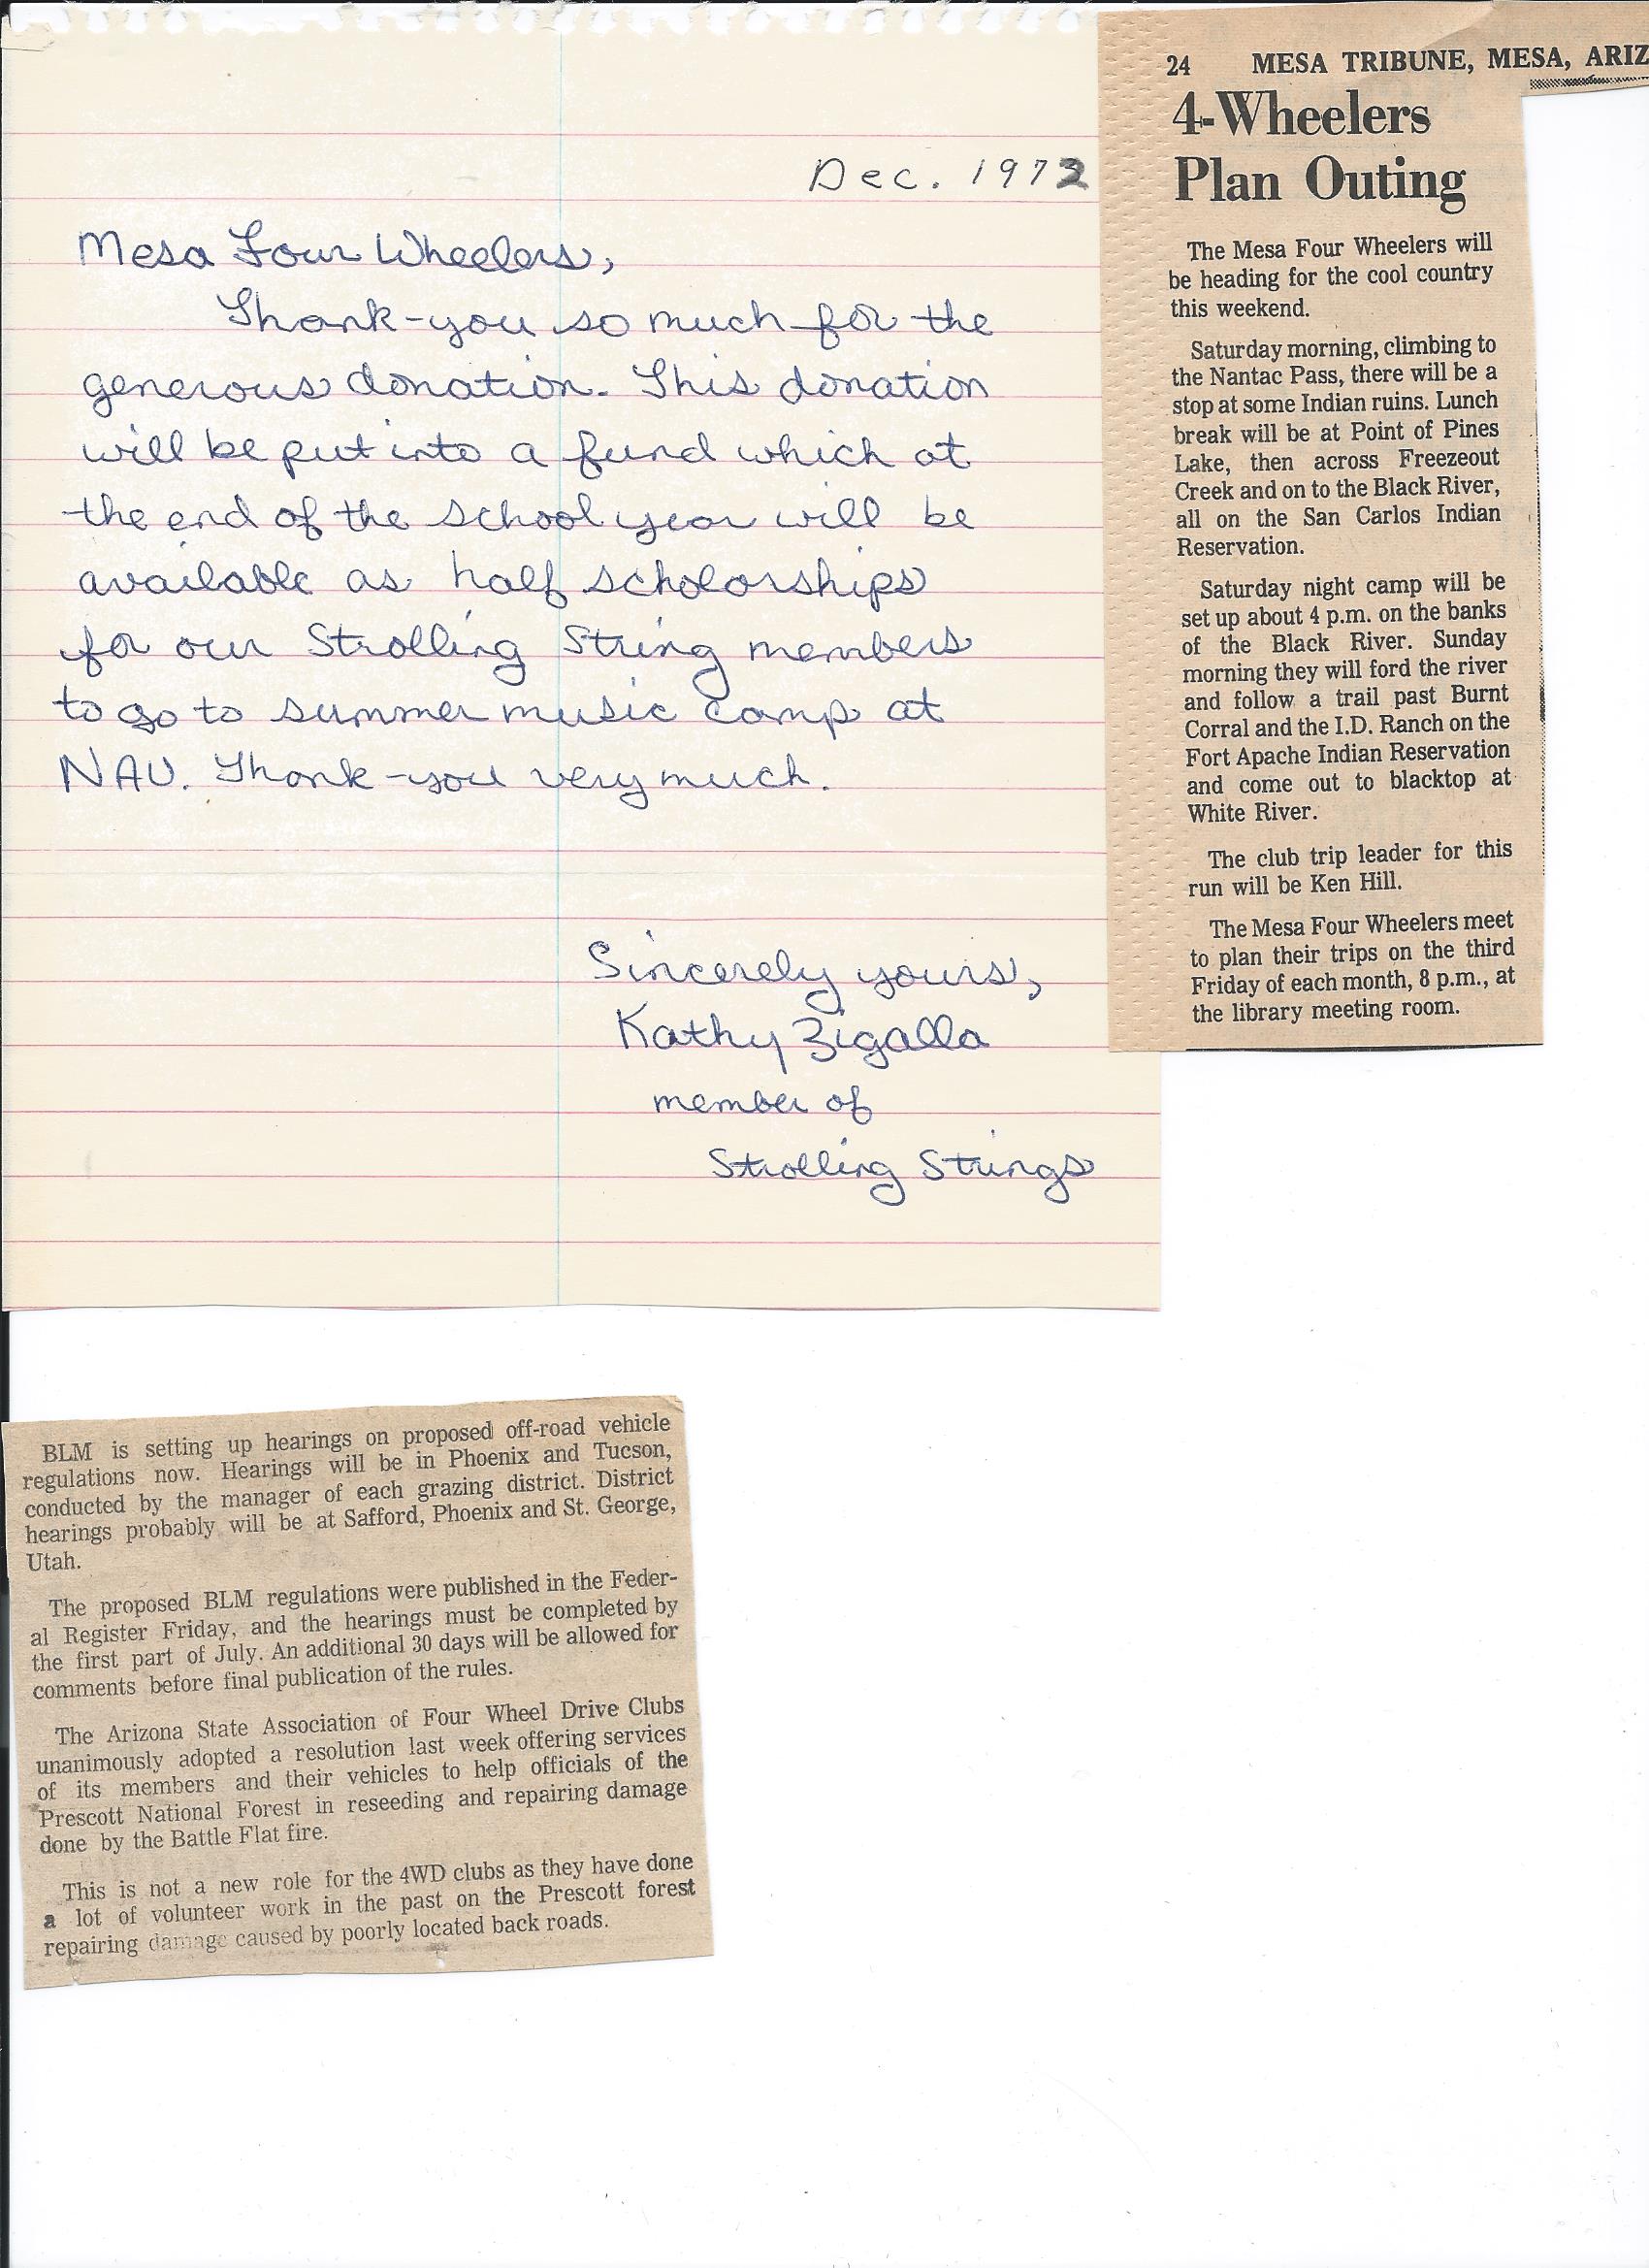 Dec. 1972
Mesa Four Wheelers,
Thank-you so much for the
generous donation. This donation
will be put into a fund which at
the end of the school year will be
available as half scholorships
for our Strolling String members
to go to summer music camp at
NAU. Thank-you very much.
Sincerely yours,
Kathy Zigalla
member of
Strolling Strings
24 MESA TRIBUNE, MESA, ARIZ
4-Wheelers
Plan Outing
The Mesa Four Wheelers will
be heading for the cool country
this weekend.
Saturday morning, climbing to
the Nantac Pass, there will be a
stop at some Indian ruins. Lunch
break will be at Point of Pines
Lake, then across Freezeout
Creek and on to the Black River,
all on the San Carlos Indian
Reservation.
Saturday night camp will be
set up about 4 p.m. on the banks
of the Black River. Sunday
morning they will ford the river
and follow a trail past Burnt
Corral and the I.D. Ranch on the
Fort Apache Indian Reservation
and come out to blacktop at
White River.
The club trip leader for this
run will be Ken Hill.
The Mesa Four Wheelers meet
to plan their trips on the third
Friday of each month, 8 p.m., at
the library meeting room.
BLM is setting up hearings on proposed off-road vehicle
regulations now. Hearings will be in Phoenix and Tucson,
conducted by the manager of each grazing district. District
hearings probably will be at Safford, Phoenix and St. George,
Utah.
The proposed BLM regulations were published in the Feder-
al Register Friday, and the hearings must be completed by
the first part of July. An additional 30 days will be allowed for
comments before final publication of the rules.
The Arizona State Association of Four Wheel Drive Clubs
unanimously adopted a resolution last week offering services
of its members and their vehicles to help officials of the
Prescott National Forest in reseeding and repairing damage
done by the Battle Flat fire.
This is not a new role for the 4WD clubs as they have done
a lot of volunteer work in the past on the Prescott forest
repairing damage caused by poorly located back roads.